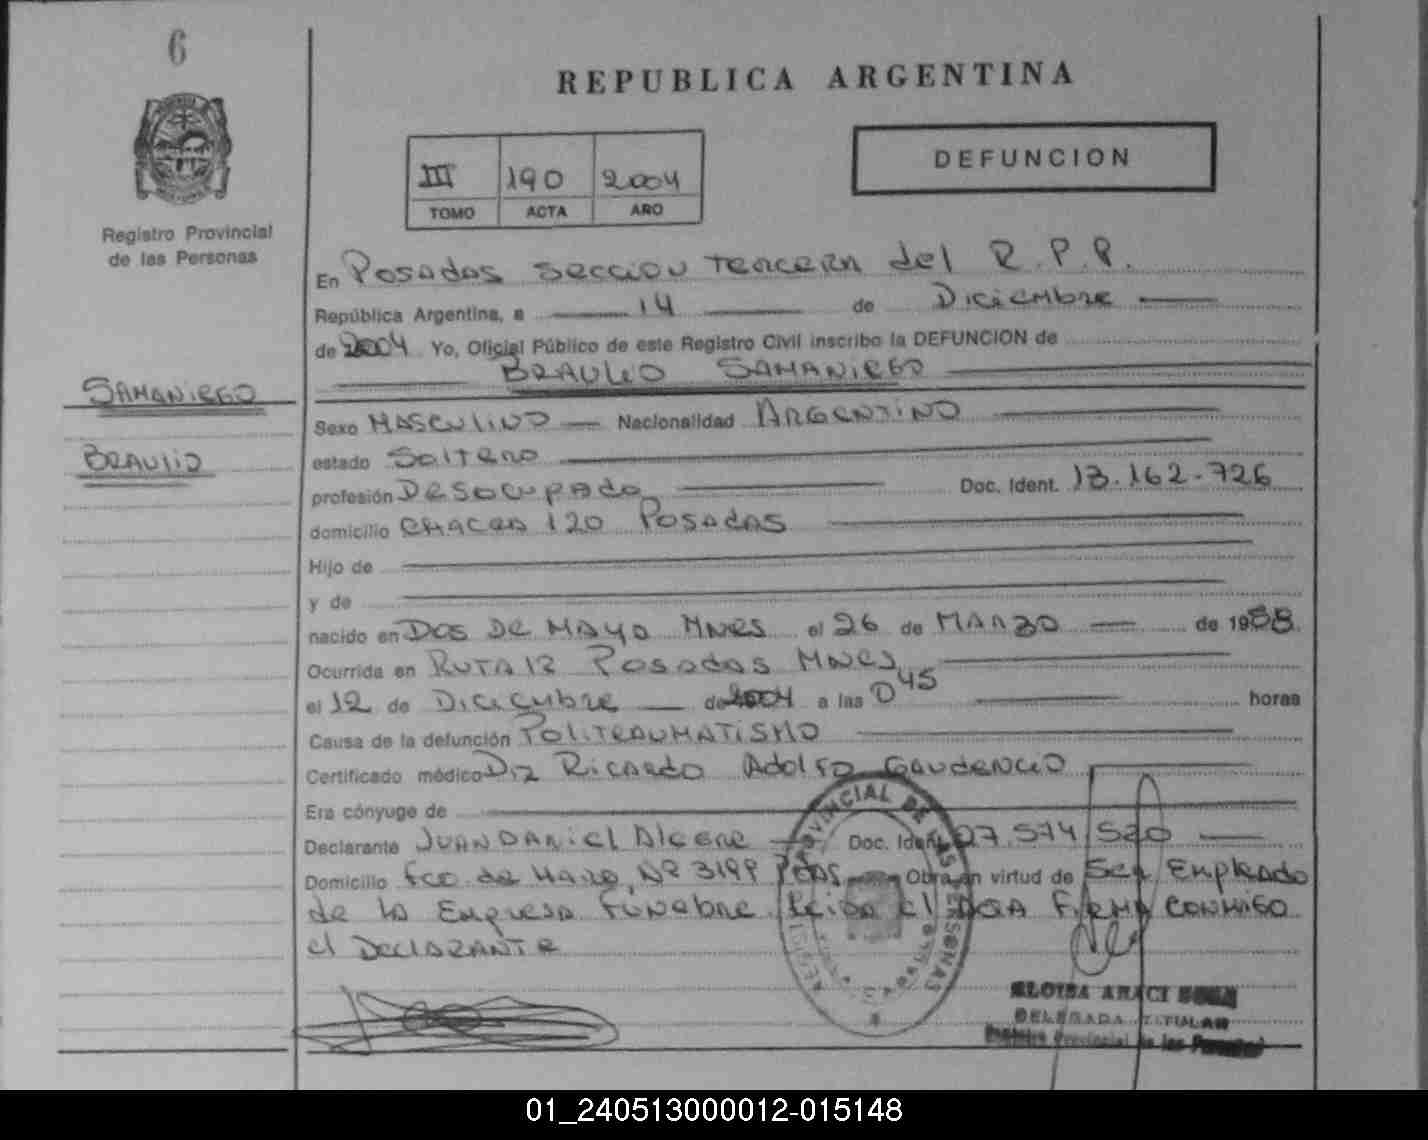 6
REPUBLICA ARGENTINA
III 190 2004
TOMO ACTA AÑO
DEFUNCION
Registro Provincial
de las Personas
En Posadas seccion tercera del R.P.P.
República Argentina, a 14 de Diciembre
de 2004 Yo, Oficial Público de este Registro Civil inscribo la DEFUNCION de
BRAULIO SAMANIEGO
SAMANIEGO
BRAULIO
Sexo MASCULINO Nacionalidad ARGENTINO
estado Soltero
profesión Desocupado Doc. Ident. 13.162-726
domicilio CHACRA 120 POSADAS
Hijo de
y de
nacido en DOS DE MAYO MNES el 26 de MARZO de 1958
Ocurrida en RUTA 12 Posadas MNES
el 12 de Diciembre de 2004 a las 0 45 horas
Causa de la defunción POLITRAUMATISMO
Certificado médico Dr Ricardo Adolfo GAUDENCIO
Era cónyuge de
Declarante JUAN DANIEL Alegre Doc. Ident. 27.574.520
Domicilio Fco. de Haro Nº 3199 Pdas Obra en virtud de Ser Empleado
de la Empresa Funebre Leida el acta FIRMA CONMIGO
el DECLARANTE
ELOISA ARACI
DELEGADA TITULAR
Registro Provincial de las Personas
01_240513000012-015148